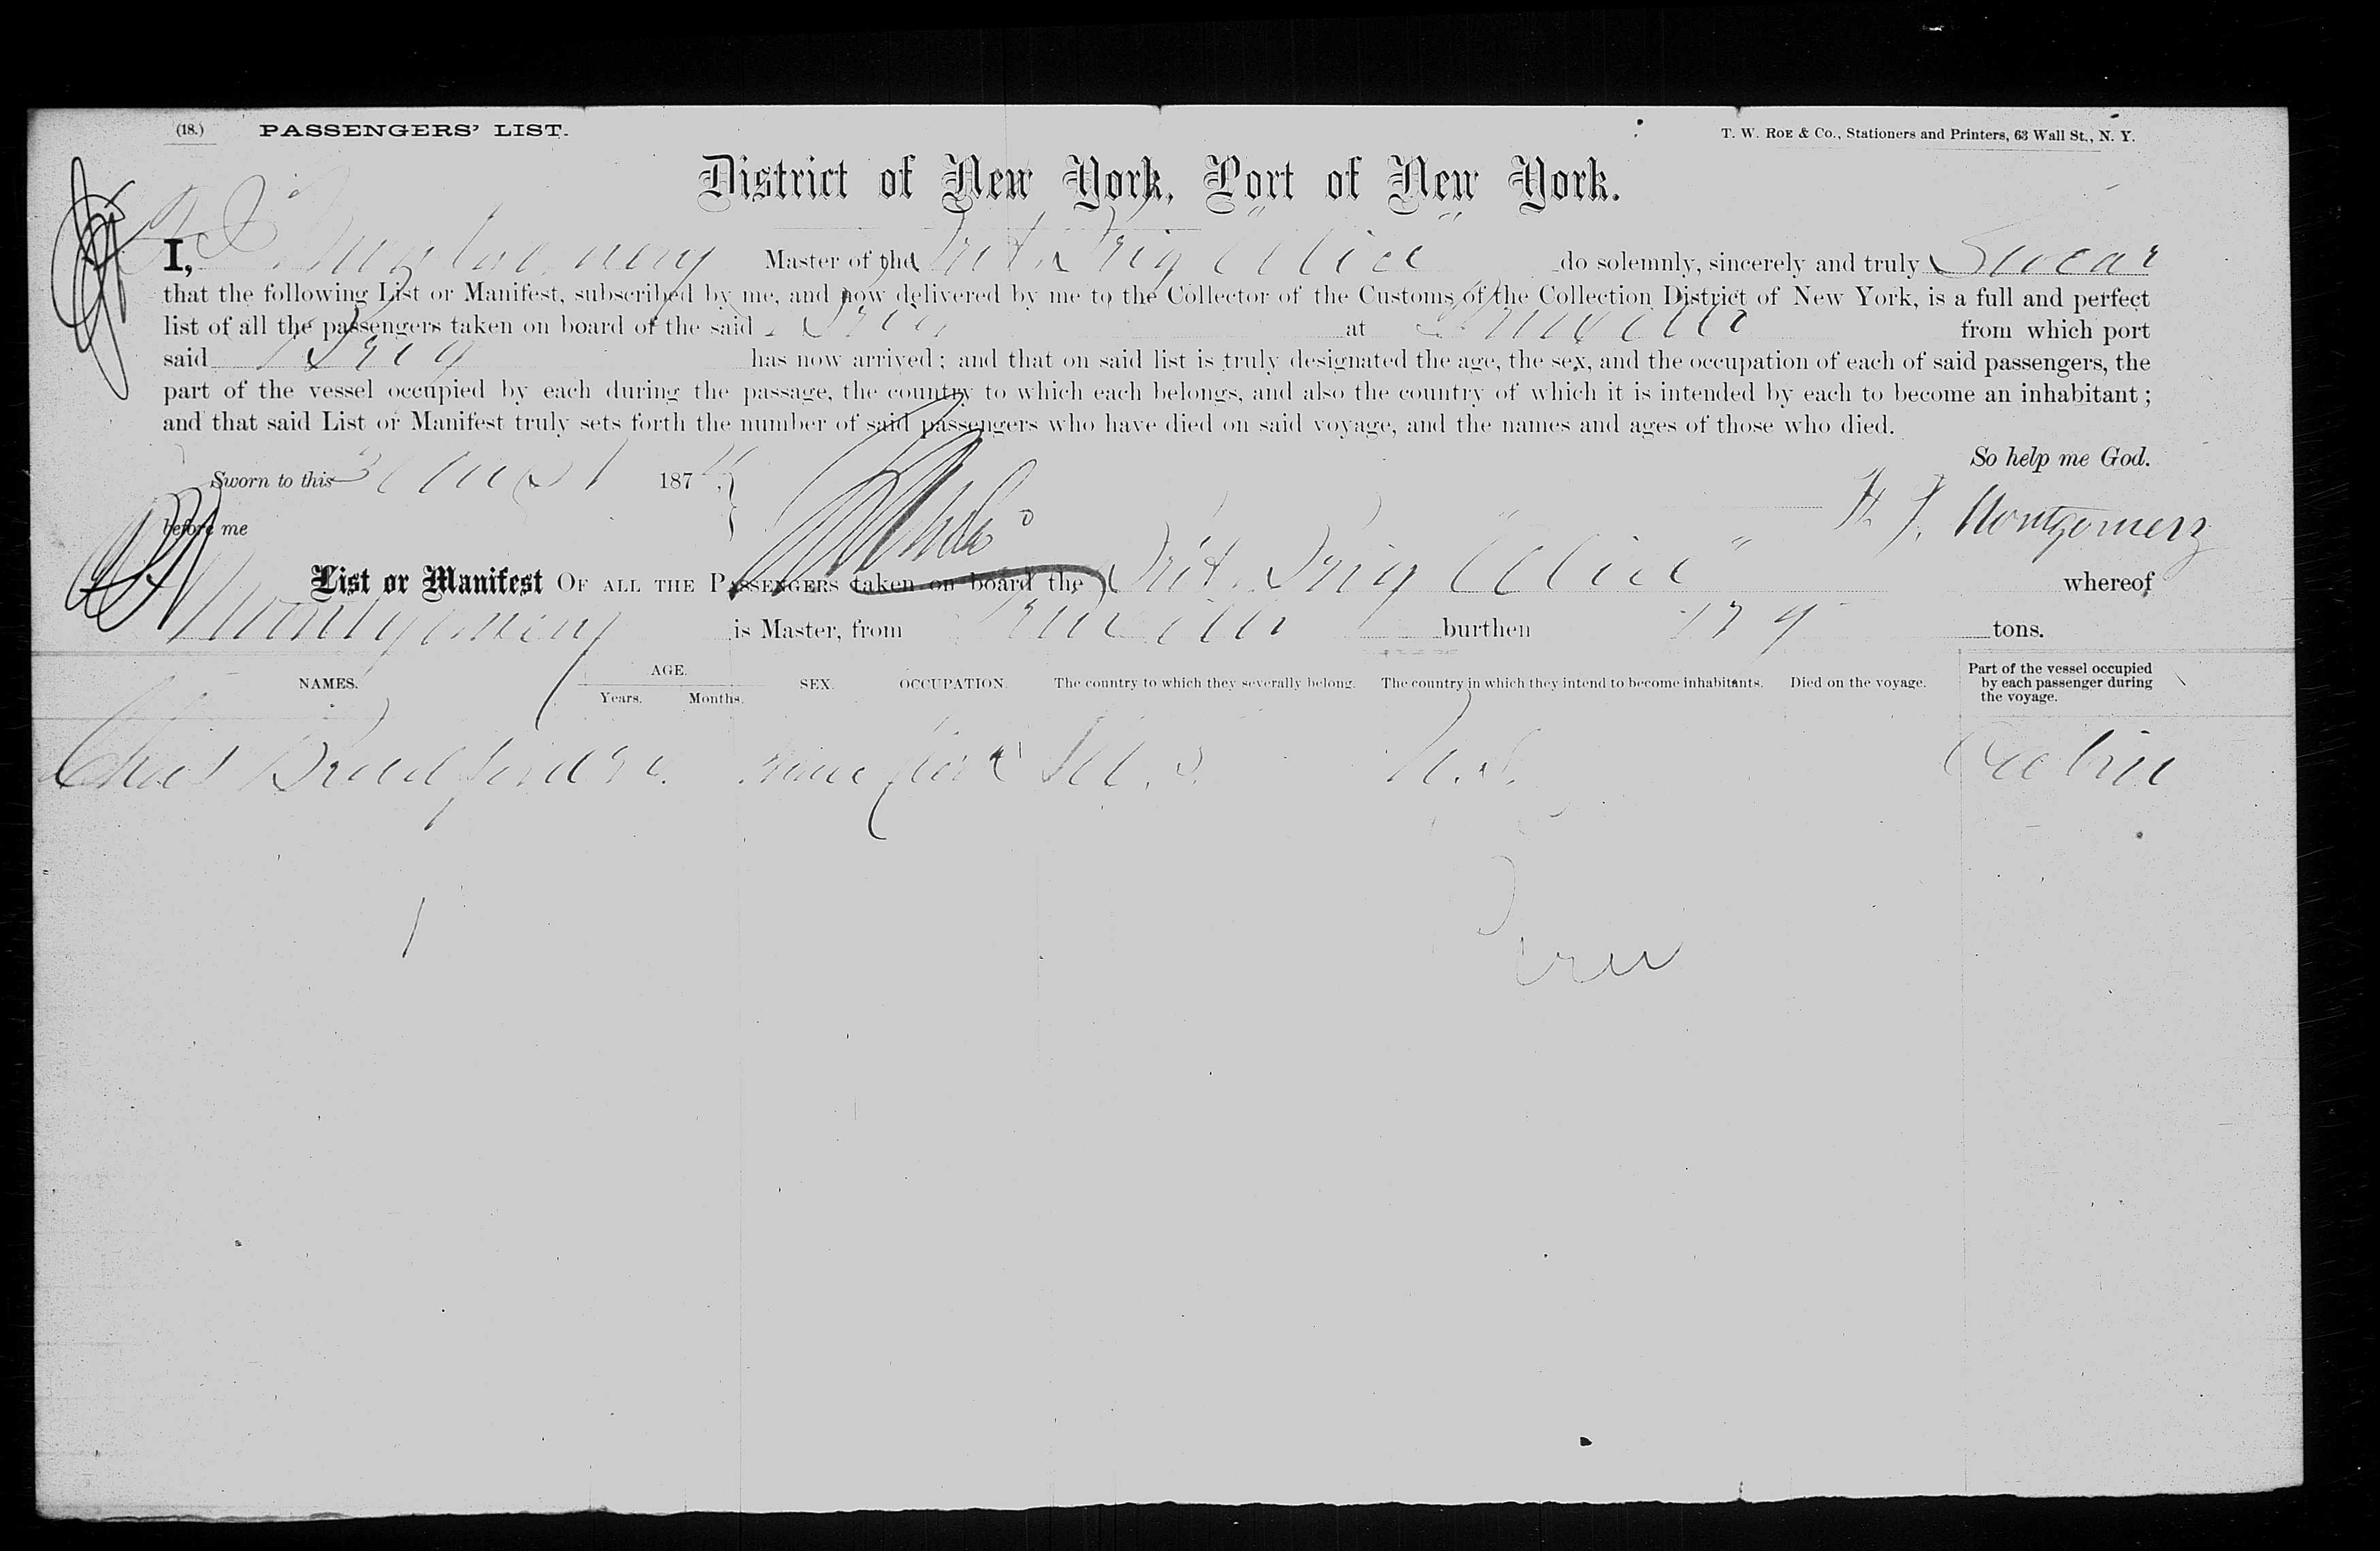 (18.) PASSENGERS' LIST. T. W. ROE & Co., Stationers and Printers, 63 Wall St., N. Y.
District of New York, Port of New York.
I, Montgomery Master of the Brit. Brig "Alice" do solemnly, sincerely and truly Swear
that the following List or Manifest, subscribed by me, and now delivered by me to the Collector of the Customs of the Collection District of New York, is a full and perfect
list of all the passengers taken on board of the said Brig at from which port
said Brig has now arrived; and that on said list is truly designated the age, the sex, and the occupation of each of said passengers, the
part of the vessel occupied by each during the passage, the country to which each belongs, and also the country of which it is intended by each to become an inhabitant;
and that said List or Manifest truly sets forth the number of said passengers who have died on said voyage, and the names and ages of those who died.
So help me God.
Sworn to this 187
before me
H. J. Montgomery
List or Manifest OF ALL THE PASSENGERS taken on board the Brit. Brig "Alice" whereof
Montgomery is Master, from burthen 179 tons.
NAMES. AGE. Years. Months. SEX. OCCUPATION. The country to which they severally belong. The country in which they intend to become inhabitants. Died on the voyage. Part of the vessel occupied by each passenger during the voyage.
Chas Bradford U.S. U.S. Cabin
1